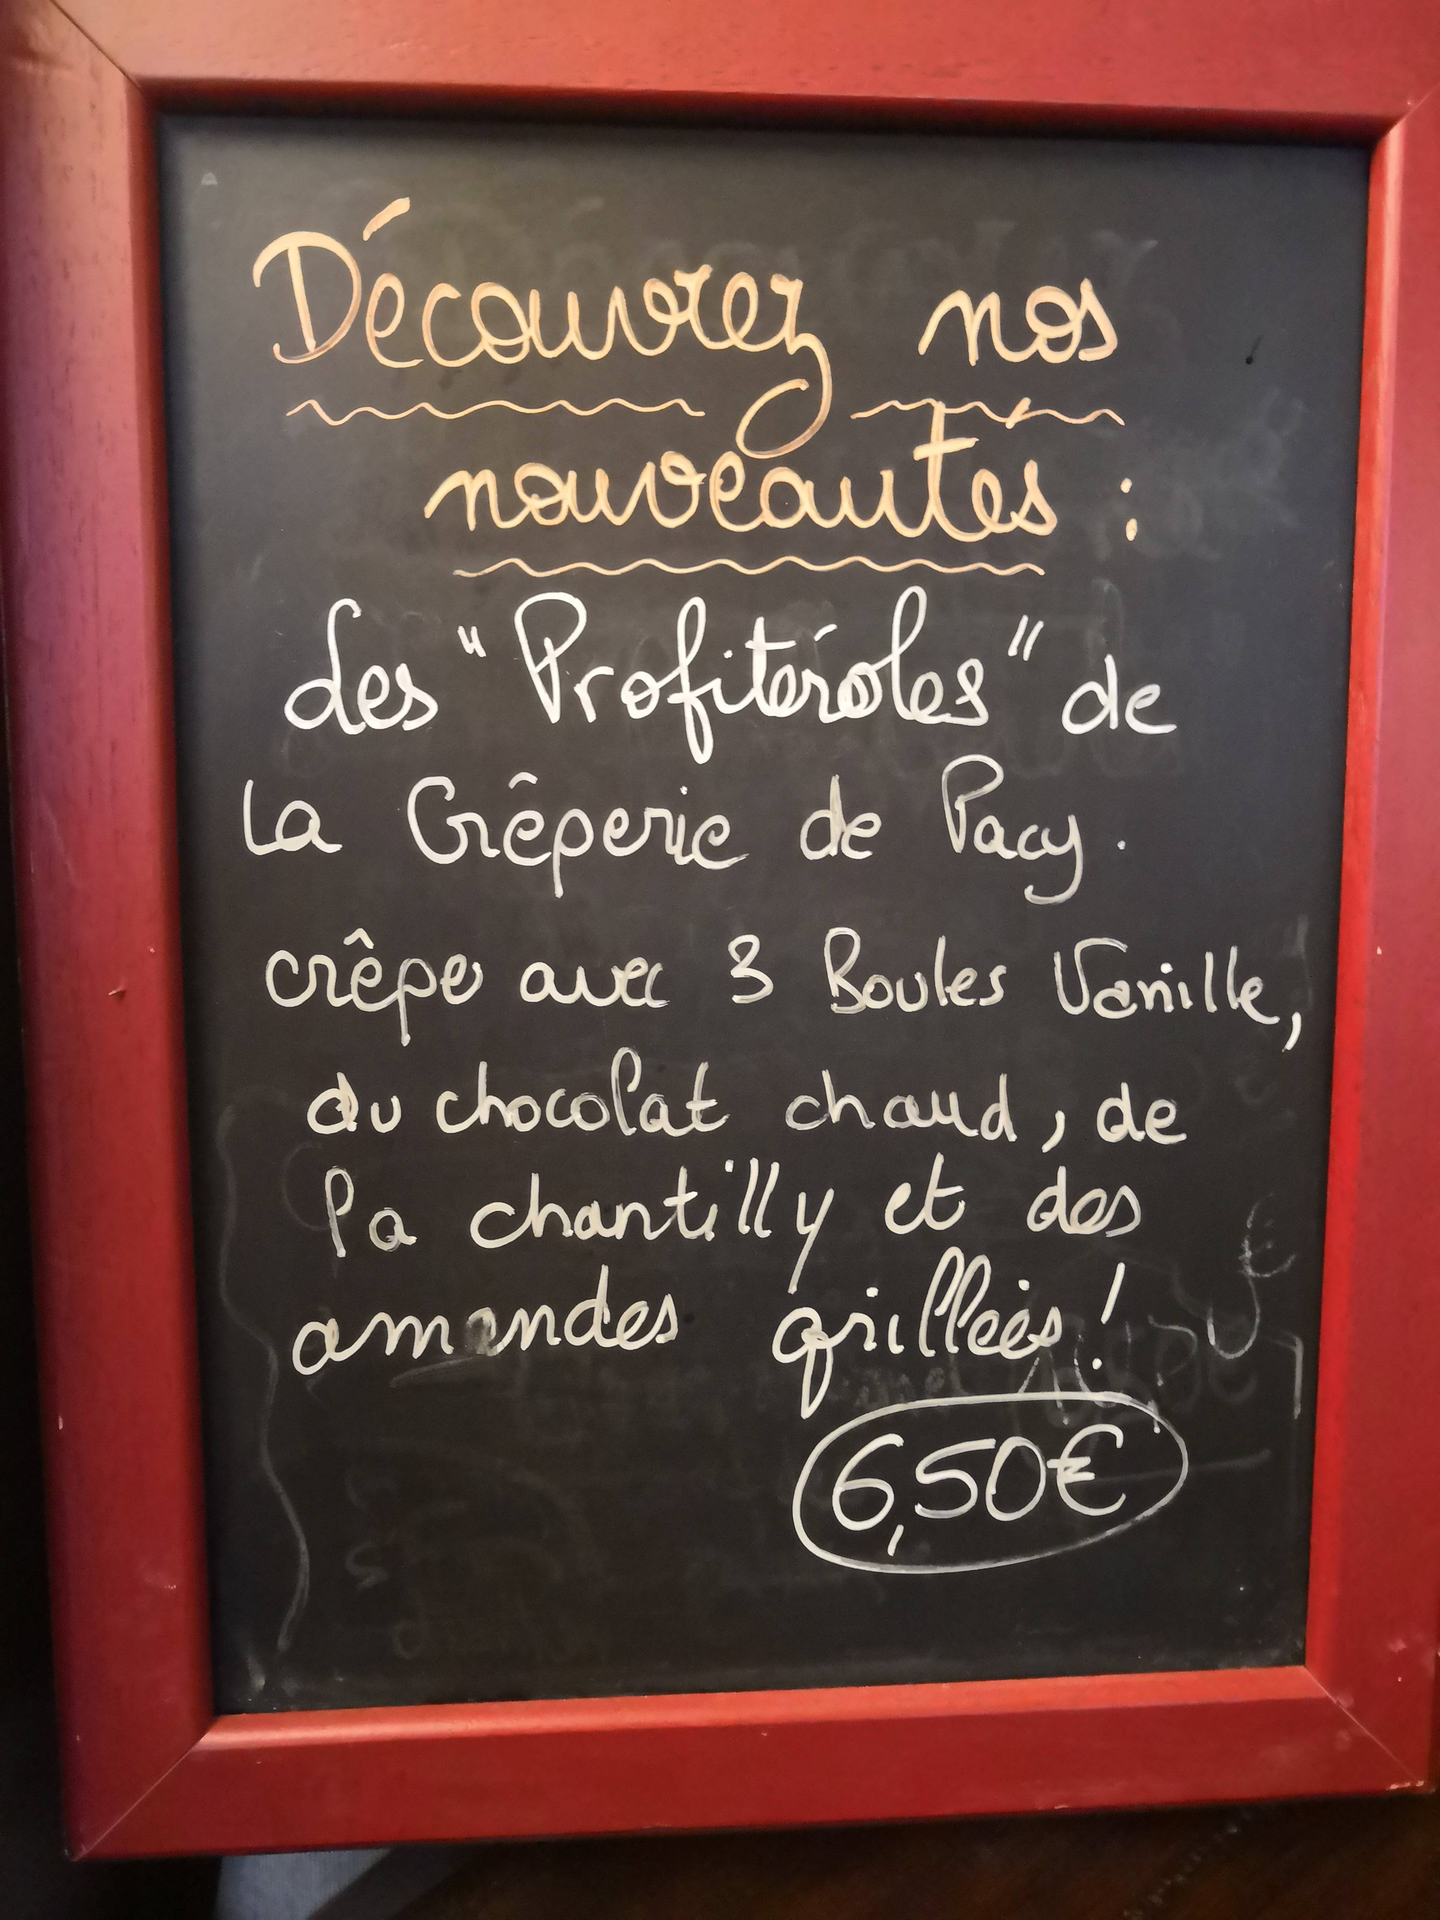 Découvrez nos
nouveautés :
des "Profitéroles" de
la Crêperie de Pacy.
crêpe avec 3 Boules Vanille,
du chocolat chaud, de
la chantilly et des
amandes grillées !
6,50€